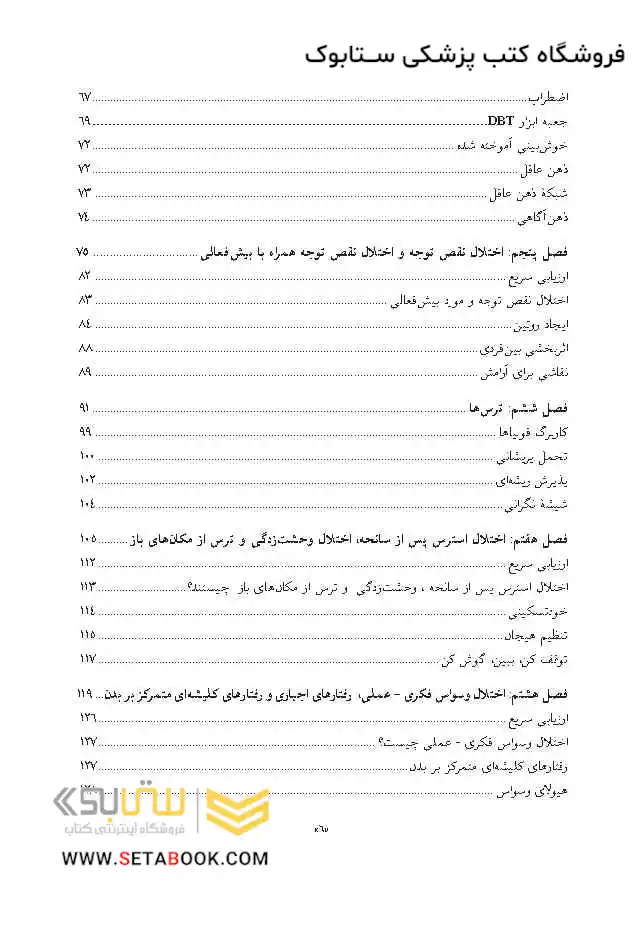 فروشگاه کتب پزشکی ستابوک
اضطراب ۶۷
جعبه ابزار DBT ۶۹
خوش‌بینی آموخته شده ۷۲
ذهن عاقل ۷۲
شبکهٔ ذهن عاقل ۷۳
ذهن‌آگاهی ۷۴
فصل پنجم: اختلال نقص توجه و اختلال نقص توجه همراه با بیش‌فعالی ۷۵
ارزیابی سریع ۸۲
اختلال نقص توجه و مورد بیش‌فعالی ۸۳
ایجاد روتین ۸۴
اثربخشی بین‌فردی ۸۸
نقاشی برای آرامش ۸۹
فصل ششم: ترس‌ها ۹۱
کاربرگ فوبیاها ۹۹
تحمل پریشانی ۱۰۰
پذیرش ریشه‌ای ۱۰۲
شیشهٔ نگرانی ۱۰۴
فصل هفتم: اختلال استرس پس از سانحه، اختلال وحشت‌زدگی و ترس از مکان‌های باز ۱۰۵
ارزیابی سریع ۱۱۲
اختلال استرس پس از سانحه ، وحشت‌زدگی و ترس از مکان‌های باز چیستند؟ ۱۱۳
خودتسکینی ۱۱۴
تنظیم هیجان ۱۱۵
توقف کن، ببین، گوش کن ۱۱۷
فصل هشتم: اختلال وسواس فکری - عملی، رفتارهای اجباری و رفتارهای کلیشه‌ای متمرکز بر بدن ۱۱۹
ارزیابی سریع ۱۲۶
اختلال وسواس فکری - عملی چیست؟ ۱۲۷
رفتارهای کلیشه‌ای متمرکز بر بدن ۱۲۷
هیولای وسواس
«۶»
ستابوک
فروشگاه اینترنتی کتاب
WWW.SETABOOK.COM